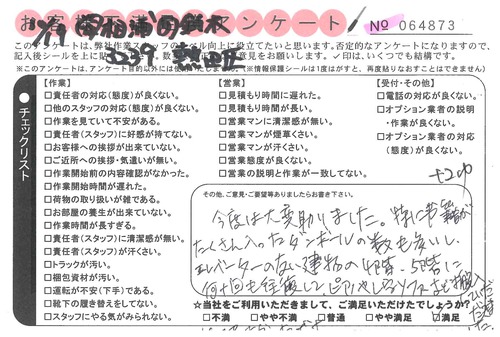 お客様 アンケート
№ 064873
このアンケートは、弊社作業スタッフのレベル向上に役立てたいと思います。否定的なアンケートになりますので、
記入後シールを上に貼 ✓印は、いくつでも結構です。
※このアンケートは、アンケート目的以外には使用いたしません。(※情報保護シールは1度はがすと、再度貼りなおすことはできません)
チェックリスト
【作業】
□責任者の対応(態度)が良くない。
□他のスタッフの対応(態度)が良くない。
□作業を見ていて不安がある。
□責任者(スタッフ)に好感が持てない。
□お客様への挨拶が出来ていない。
□ご近所への挨拶・気遣いが無い。
□作業開始前の内容確認がなかった。
□作業開始時間が遅れた。
□荷物の取り扱いが雑である。
□お部屋の養生が出来ていない。
□作業時間が長すぎる。
□責任者(スタッフ)に清潔感が無い。
□責任者(スタッフ)が汗くさい。
□トラックが汚い。
□梱包資材が汚い。
□運転が不安(下手)である。
□靴下の履き替えをしてない。
□スタッフにやる気がみられない。
【営業】
□見積もり時間に遅れた。
□見積もり時間が長い。
□営業マンに清潔感が無い。
□営業マンが煙草くさい。
□営業マンが汗くさい。
□営業態度が良くない。
□営業の説明と作業が一致してない。
【受付・その他】
□電話の対応が良くない。
□オプション業者の説明
・作業が良くない。
□オプション業者の対応
(態度)が良くない。
その他、ご意見・ご要望等ありましたらお書き下さい。
今度は大変助しました。特に書籍が
たくさん入ったダンボールの数も多いし、
エレベーターのない建物の4階、5階に
何十回も往復して
☆当社をご利用いただきまして、ご満足いただけたでしょうか?
□不満 □やや不満 □普通 □やや満足 □満足